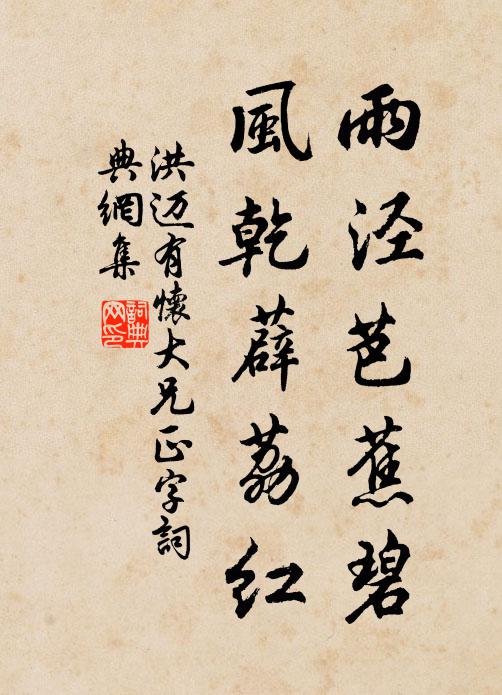 雨泾芭蕉碧
風乾薜荔红
洪迈有懷大兄正字詞
典網集
詞典
网印